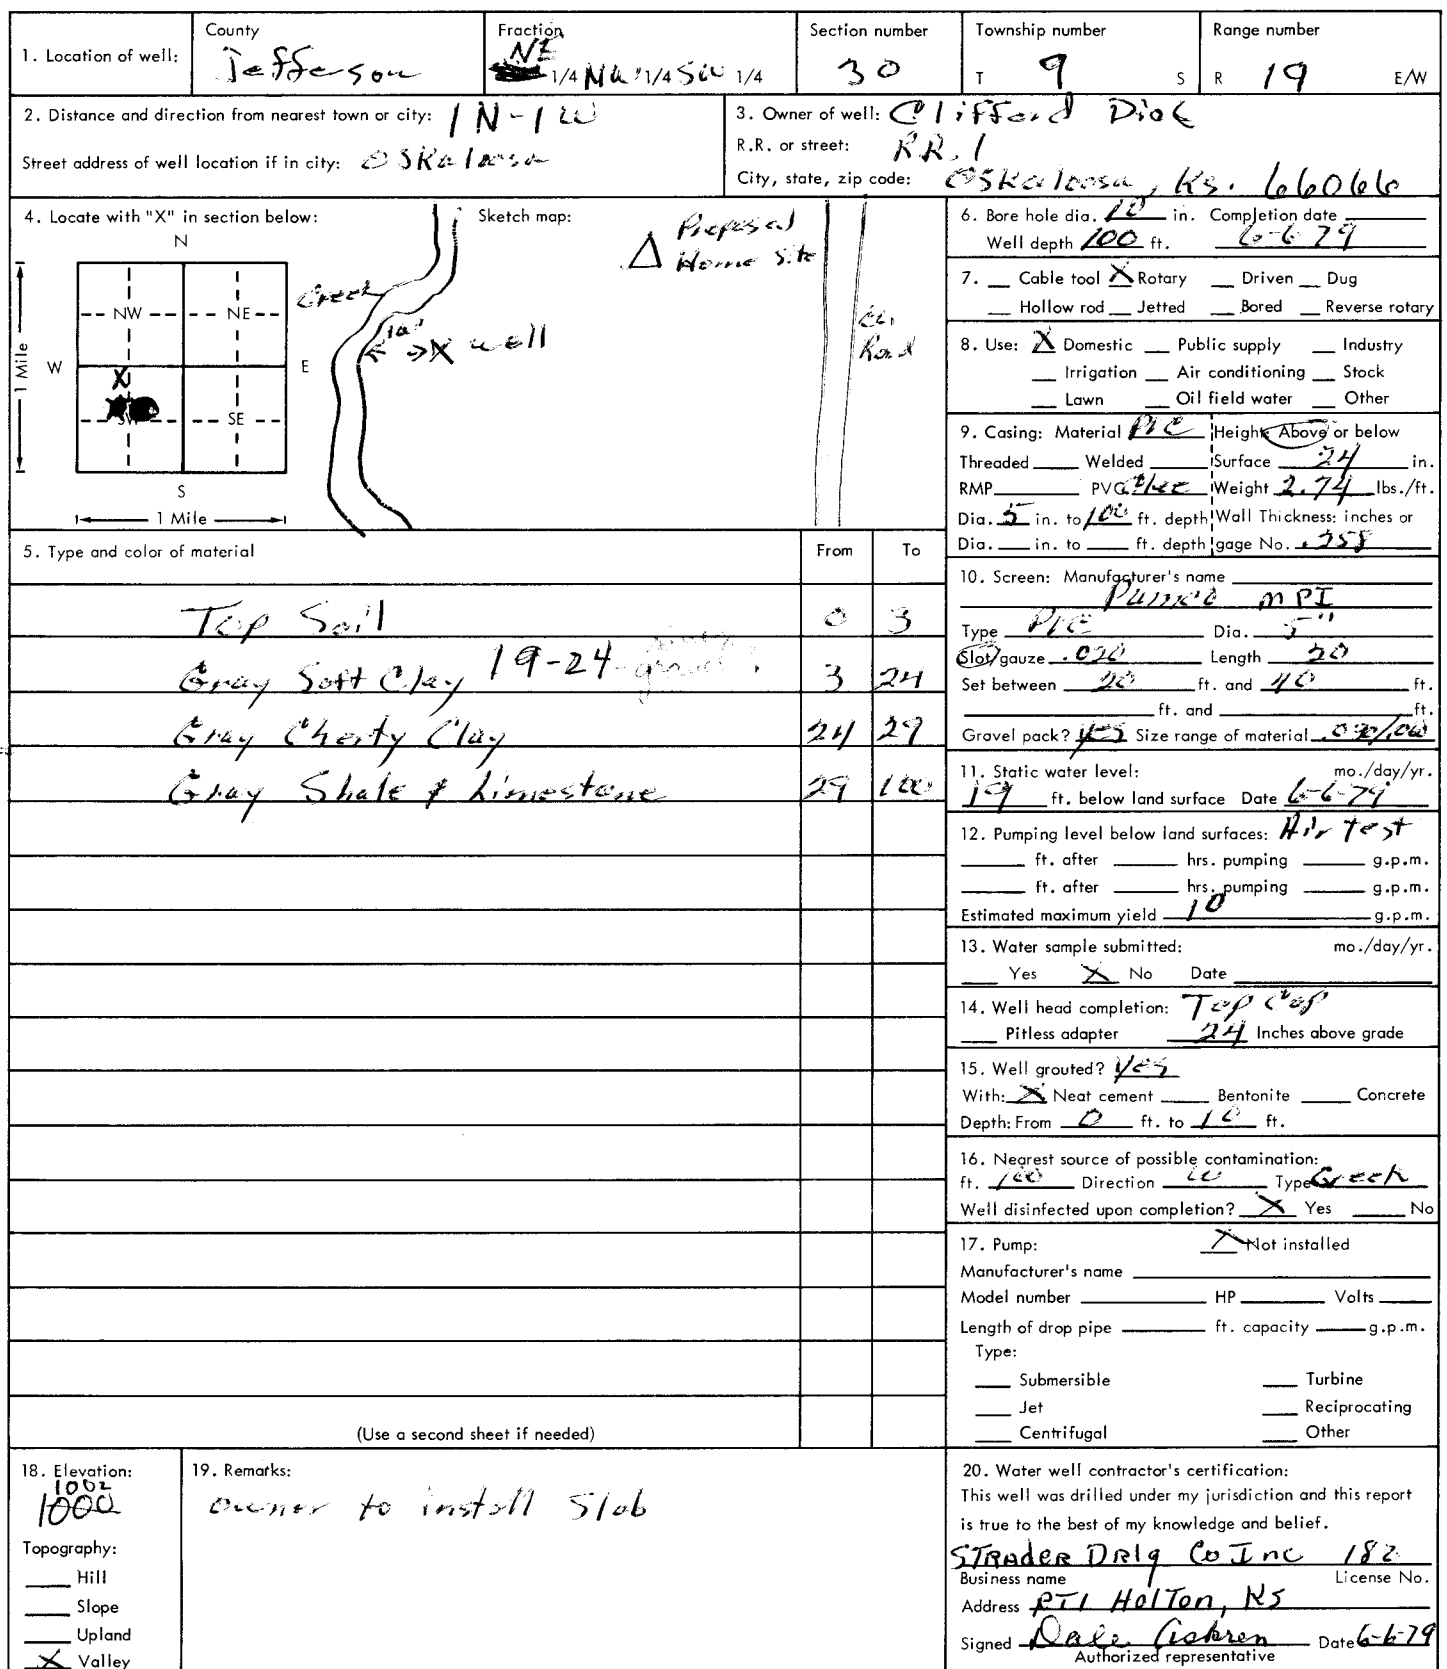 1. Location of well:
County
Jefferson
Fraction
NE 1/4 NW 1/4 SW 1/4
Section number
30
Township number
T 9 S
Range number
R 19 E/W
2. Distance and direction from nearest town or city: 1 N-1 W
Street address of well location if in city: Oskaloosa
3. Owner of well: Clifford Dick
R.R. or street: RR. 1
City, state, zip code: Oskaloosa, Ks. 66066
4. Locate with "X" in section below:
N
NW NE
W E
X
SW SE
S
1 Mile
1 Mile
Sketch map:
Proposed
Home Site
Creek
100'
X Well
Co.
Road
5. Type and color of material From To
Top Soil 0 3
Gray Soft Clay 19-24 gravel 3 24
Gray Cherty Clay 24 29
Gray Shale & Limestone 29 100
(Use a second sheet if needed)
6. Bore hole dia. 10 in. Completion date
Well depth 100 ft. 6-6-79
7. Cable tool X Rotary Driven Dug
Hollow rod Jetted Bored Reverse rotary
8. Use: X Domestic Public supply Industry
Irrigation Air conditioning Stock
Lawn Oil field water Other
9. Casing: Material PVC Height: Above or below
Threaded Welded Surface 24 in.
RMP PVC Weight 2.74 lbs./ft.
Dia. 5 in. to 100 ft. depth Wall Thickness: inches or
Dia. in. to ft. depth gage No. .258
10. Screen: Manufacturer's name
MPI
Type PVC Dia. 5"
Slot/gauze .020 Length 20
Set between 20 ft. and 40 ft.
ft. and ft.
Gravel pack? yes Size range of material
11. Static water level: mo./day/yr.
19 ft. below land surface Date 6-6-79
12. Pumping level below land surfaces: Air test
ft. after hrs. pumping g.p.m.
ft. after hrs. pumping g.p.m.
Estimated maximum yield 10 g.p.m.
13. Water sample submitted: mo./day/yr.
Yes X No Date
14. Well head completion: Top Cap
Pitless adapter 24 Inches above grade
15. Well grouted? yes
With: X Neat cement Bentonite Concrete
Depth: From 0 ft. to 10 ft.
16. Nearest source of possible contamination:
ft. 100 Direction W Type Creek
Well disinfected upon completion? X Yes No
17. Pump: X Not installed
Manufacturer's name
Model number HP Volts
Length of drop pipe ft. capacity g.p.m.
Type:
Submersible Turbine
Jet Reciprocating
Centrifugal Other
18. Elevation:
1002
1000
Topography:
Hill
Slope
Upland
X Valley
19. Remarks:
owner to install Slab
20. Water well contractor's certification:
This well was drilled under my jurisdiction and this report
is true to the best of my knowledge and belief.
STRADER DRlg Co Inc 182
Business name License No.
Address RT1 Holton, KS
Signed Dale Askren Date 6-6-79
Authorized representative